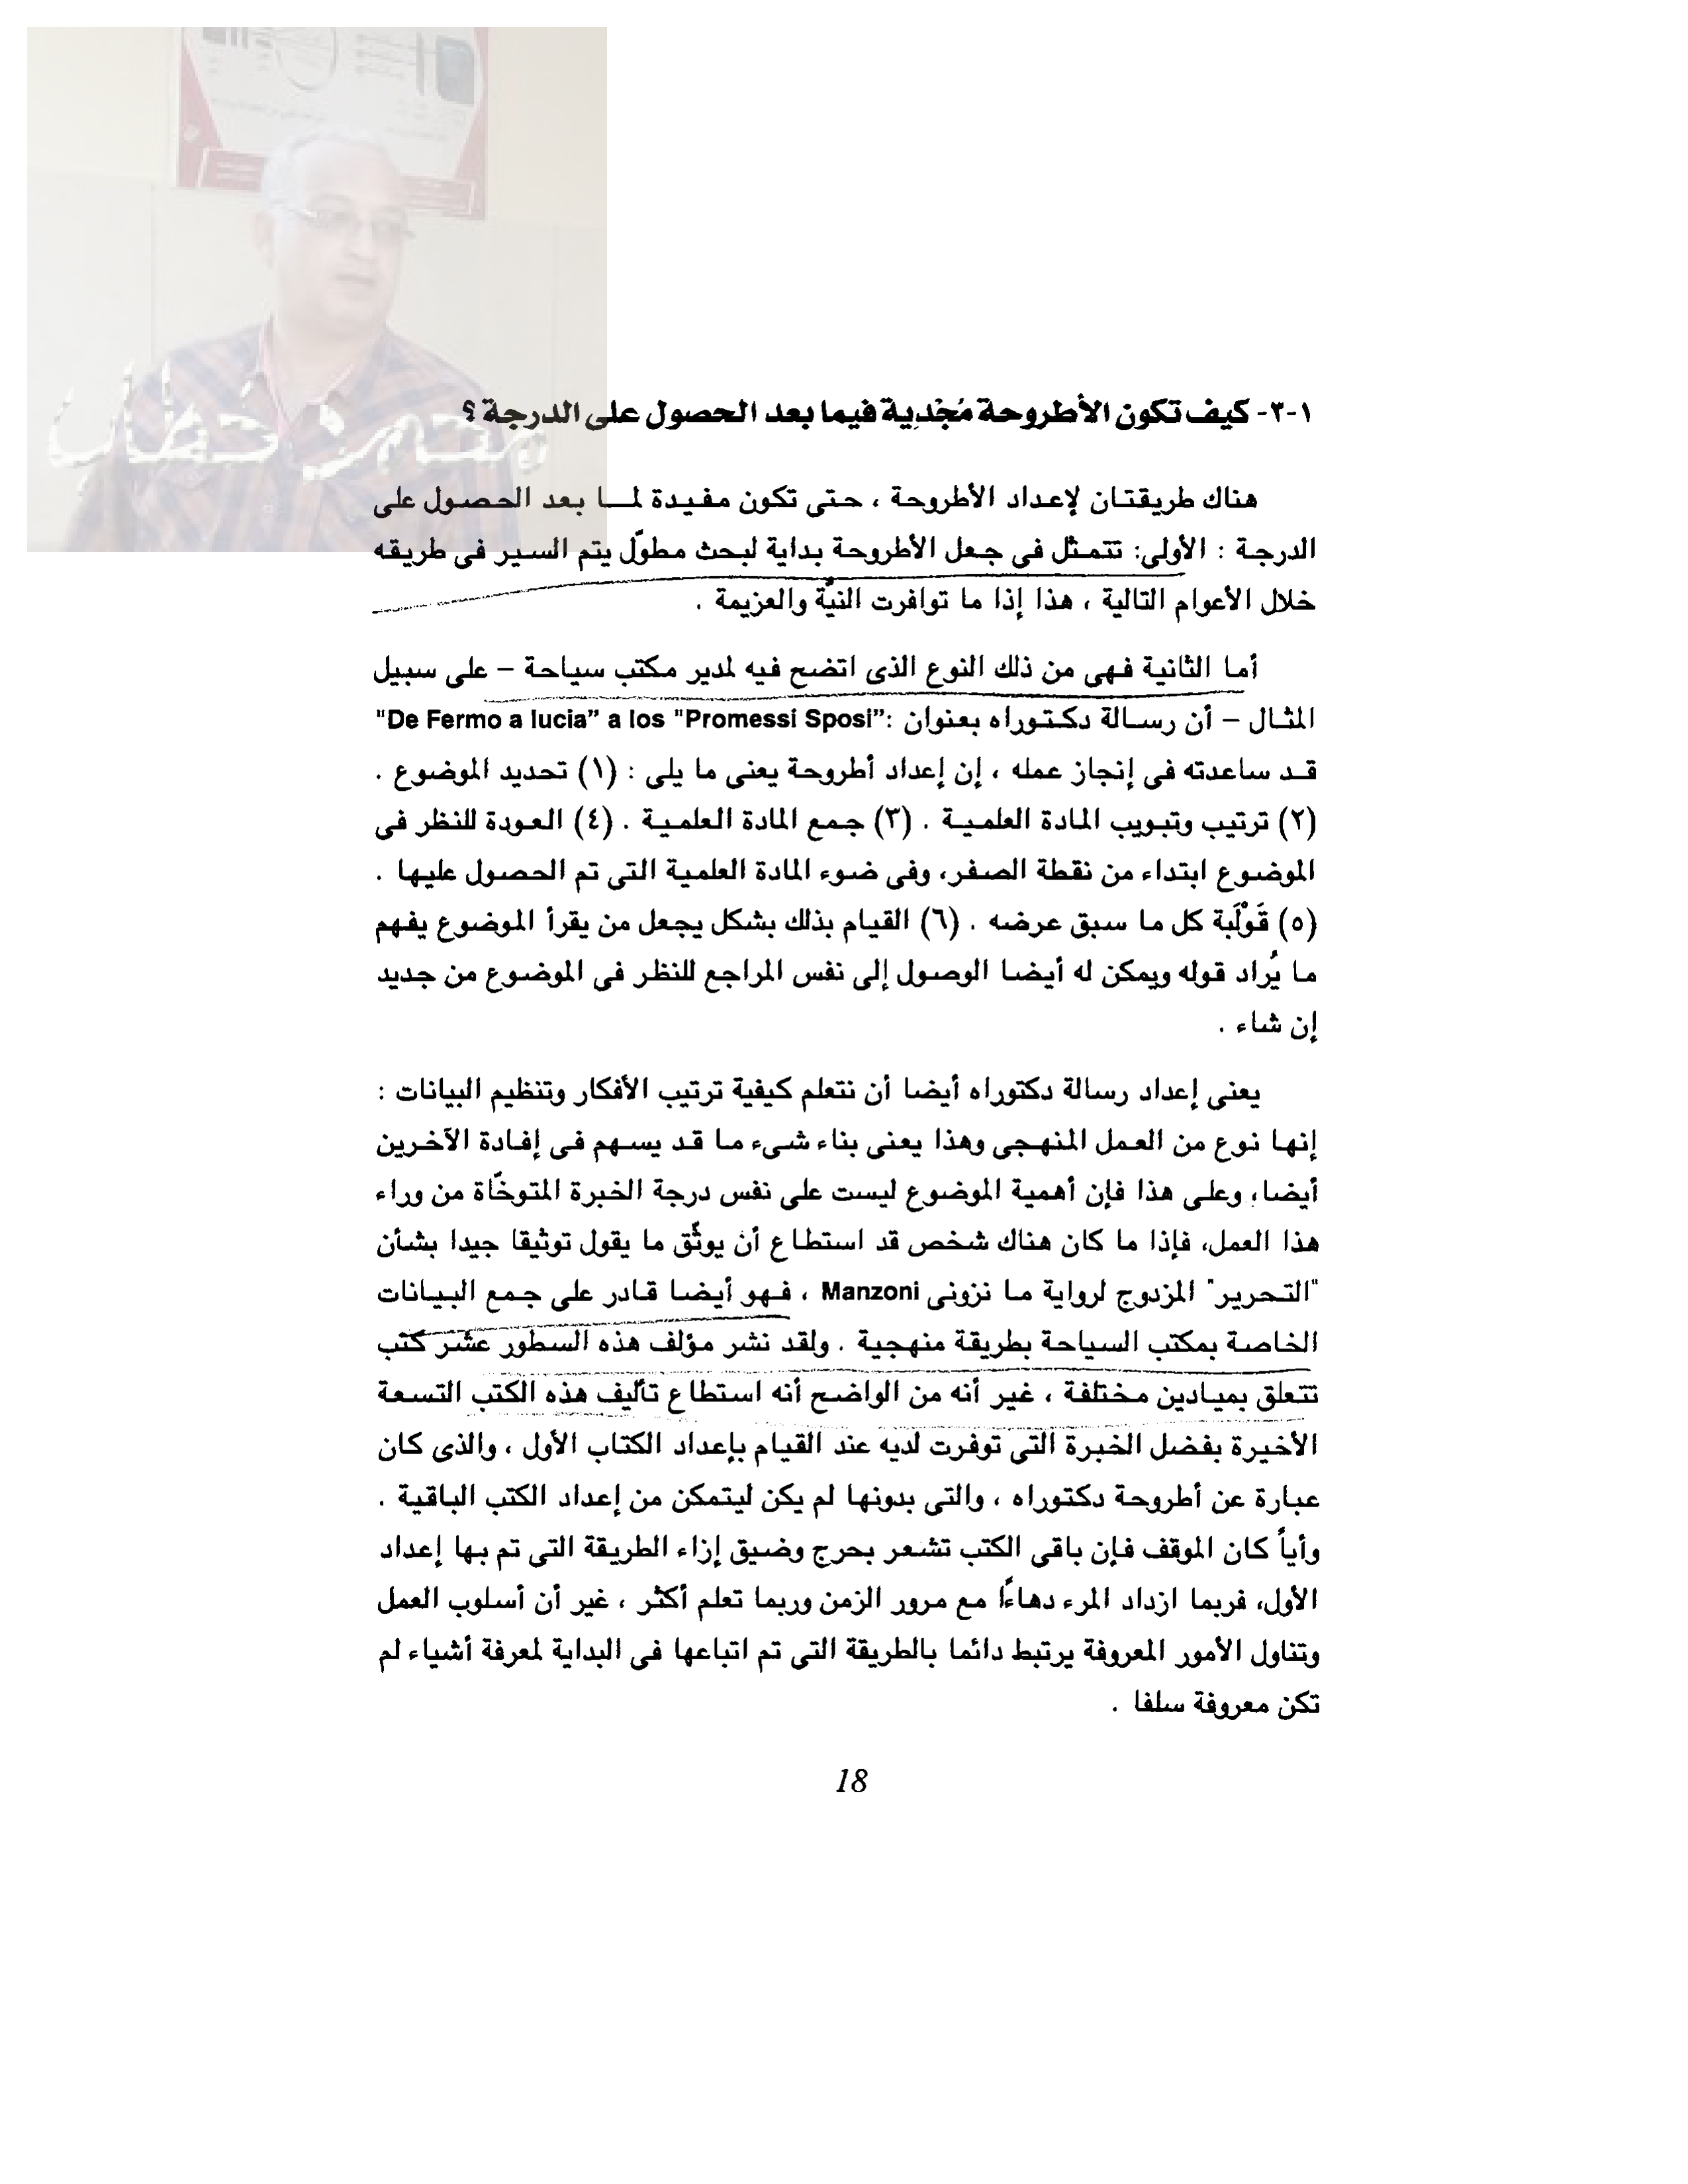 محمد خطاب
١-٢- كيف تكون الأطروحة مُجْدِية فيما بعد الحصول على الدرجة ؟
هناك طريقتان لإعداد الأطروحة ، حتى تكون مفيدة لما بعد الحصول على
الدرجة : الأولى: تتمثل فى جعل الأطروحة بداية لبحث مطوّل يتم السير فى طريقه
خلال الأعوام التالية ، هذا إذا ما توافرت النيَّة والعزيمة .
أما الثانية فهى من ذلك النوع الذى اتضح فيه لمدير مكتب سياحة – على سبيل
المثال – أن رسالة دكتوراه بعنوان :"De Fermo a lucia” a los "Promessi Sposi”
قد ساعدته فى إنجاز عمله ، إن إعداد أطروحة يعنى ما يلى : (١) تحديد الموضوع .
(٢) ترتيب وتبويب المادة العلمية . (٣) جمع المادة العلمية . (٤) العودة للنظر فى
الموضوع ابتداء من نقطة الصفر، وفى ضوء المادة العلمية التى تم الحصول عليها .
(٥) قَوْلَبة كل ما سبق عرضه . (٦) القيام بذلك بشكل يجعل من يقرأ الموضوع يفهم
ما يُراد قوله ويمكن له أيضا الوصول إلى نفس المراجع للنظر فى الموضوع من جديد
إن شاء .
يعنى إعداد رسالة دكتوراه أيضا أن نتعلم كيفية ترتيب الأفكار وتنظيم البيانات :
إنها نوع من العمل المنهجى وهذا يعنى بناء شىء ما قد يسهم فى إفادة الآخرين
أيضا، وعلى هذا فإن أهمية الموضوع ليست على نفس درجة الخبرة المتوخّاة من وراء
هذا العمل، فإذا ما كان هناك شخص قد استطاع أن يوثّق ما يقول توثيقا جيدا بشأن
"التحرير" المزدوج لرواية ما نزونى Manzoni ، فهو أيضا قادر على جمع البيانات
الخاصة بمكتب السياحة بطريقة منهجية . ولقد نشر مؤلف هذه السطور عشر كتب
تتعلق بميادين مختلفة ، غير أنه من الواضح أنه استطاع تأليف هذه الكتب التسعة
الأخيرة بفضل الخبرة التى توفرت لديه عند القيام بإعداد الكتاب الأول ، والذى كان
عبارة عن أطروحة دكتوراه ، والتى بدونها لم يكن ليتمكن من إعداد الكتب الباقية .
وأياً كان الموقف فإن باقى الكتب تشعر بحرج وضيق إزاء الطريقة التى تم بها إعداد
الأول، فربما ازداد المرء دهاءًا مع مرور الزمن وربما تعلم أكثر ، غير أن أسلوب العمل
وتناول الأمور المعروفة يرتبط دائما بالطريقة التى تم اتباعها فى البداية لمعرفة أشياء لم
تكن معروفة سلفا .
18